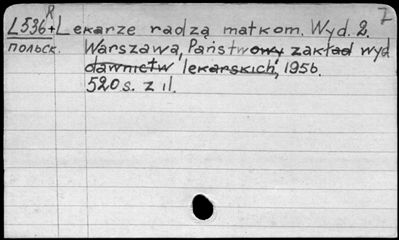 L536+ Lekarze radzą matkom. Wyd. 2.
польск. Warszawa, Państwowy zakład wyd
dawnictw lekarskich, 1956.
520 s. z il.